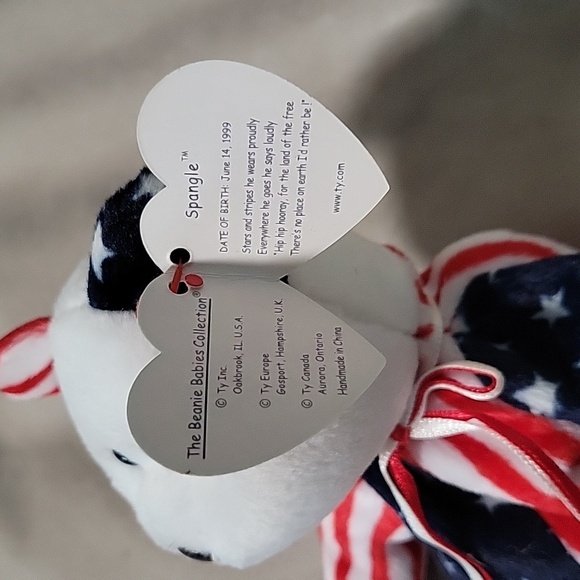 The Beanie Babies Collection®
© Ty Inc.
Oakbrook, IL U.S.A.
© Ty Europe
Gosport, Hampshire, U.K.
© Ty Canada
Aurora, Ontario
Handmade in China
Spangle™
DATE OF BIRTH: June 14, 1999
Stars and stripes he wears proudly
Everywhere he goes he says loudly
"Hip hip hooray, for the land of the free
There's no place on earth I'd rather be!"
www.ty.com